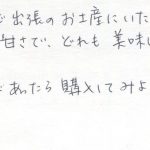 で出張のお土産にいた
甘さで、どれも美味し
であったら購入してみよ